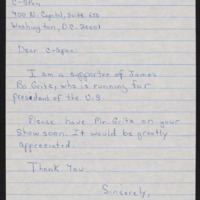 C-Span
400 N. Capitol, Suite 650
Washington, D.C. 20001
Dear C-Span:
I am a supporter of James
Bo Gritz, who is running for
president of the U.S.
Please have Mr. Gritz on your
show soon. It would be greatly
appreciated.
Thank You
Sincerely,